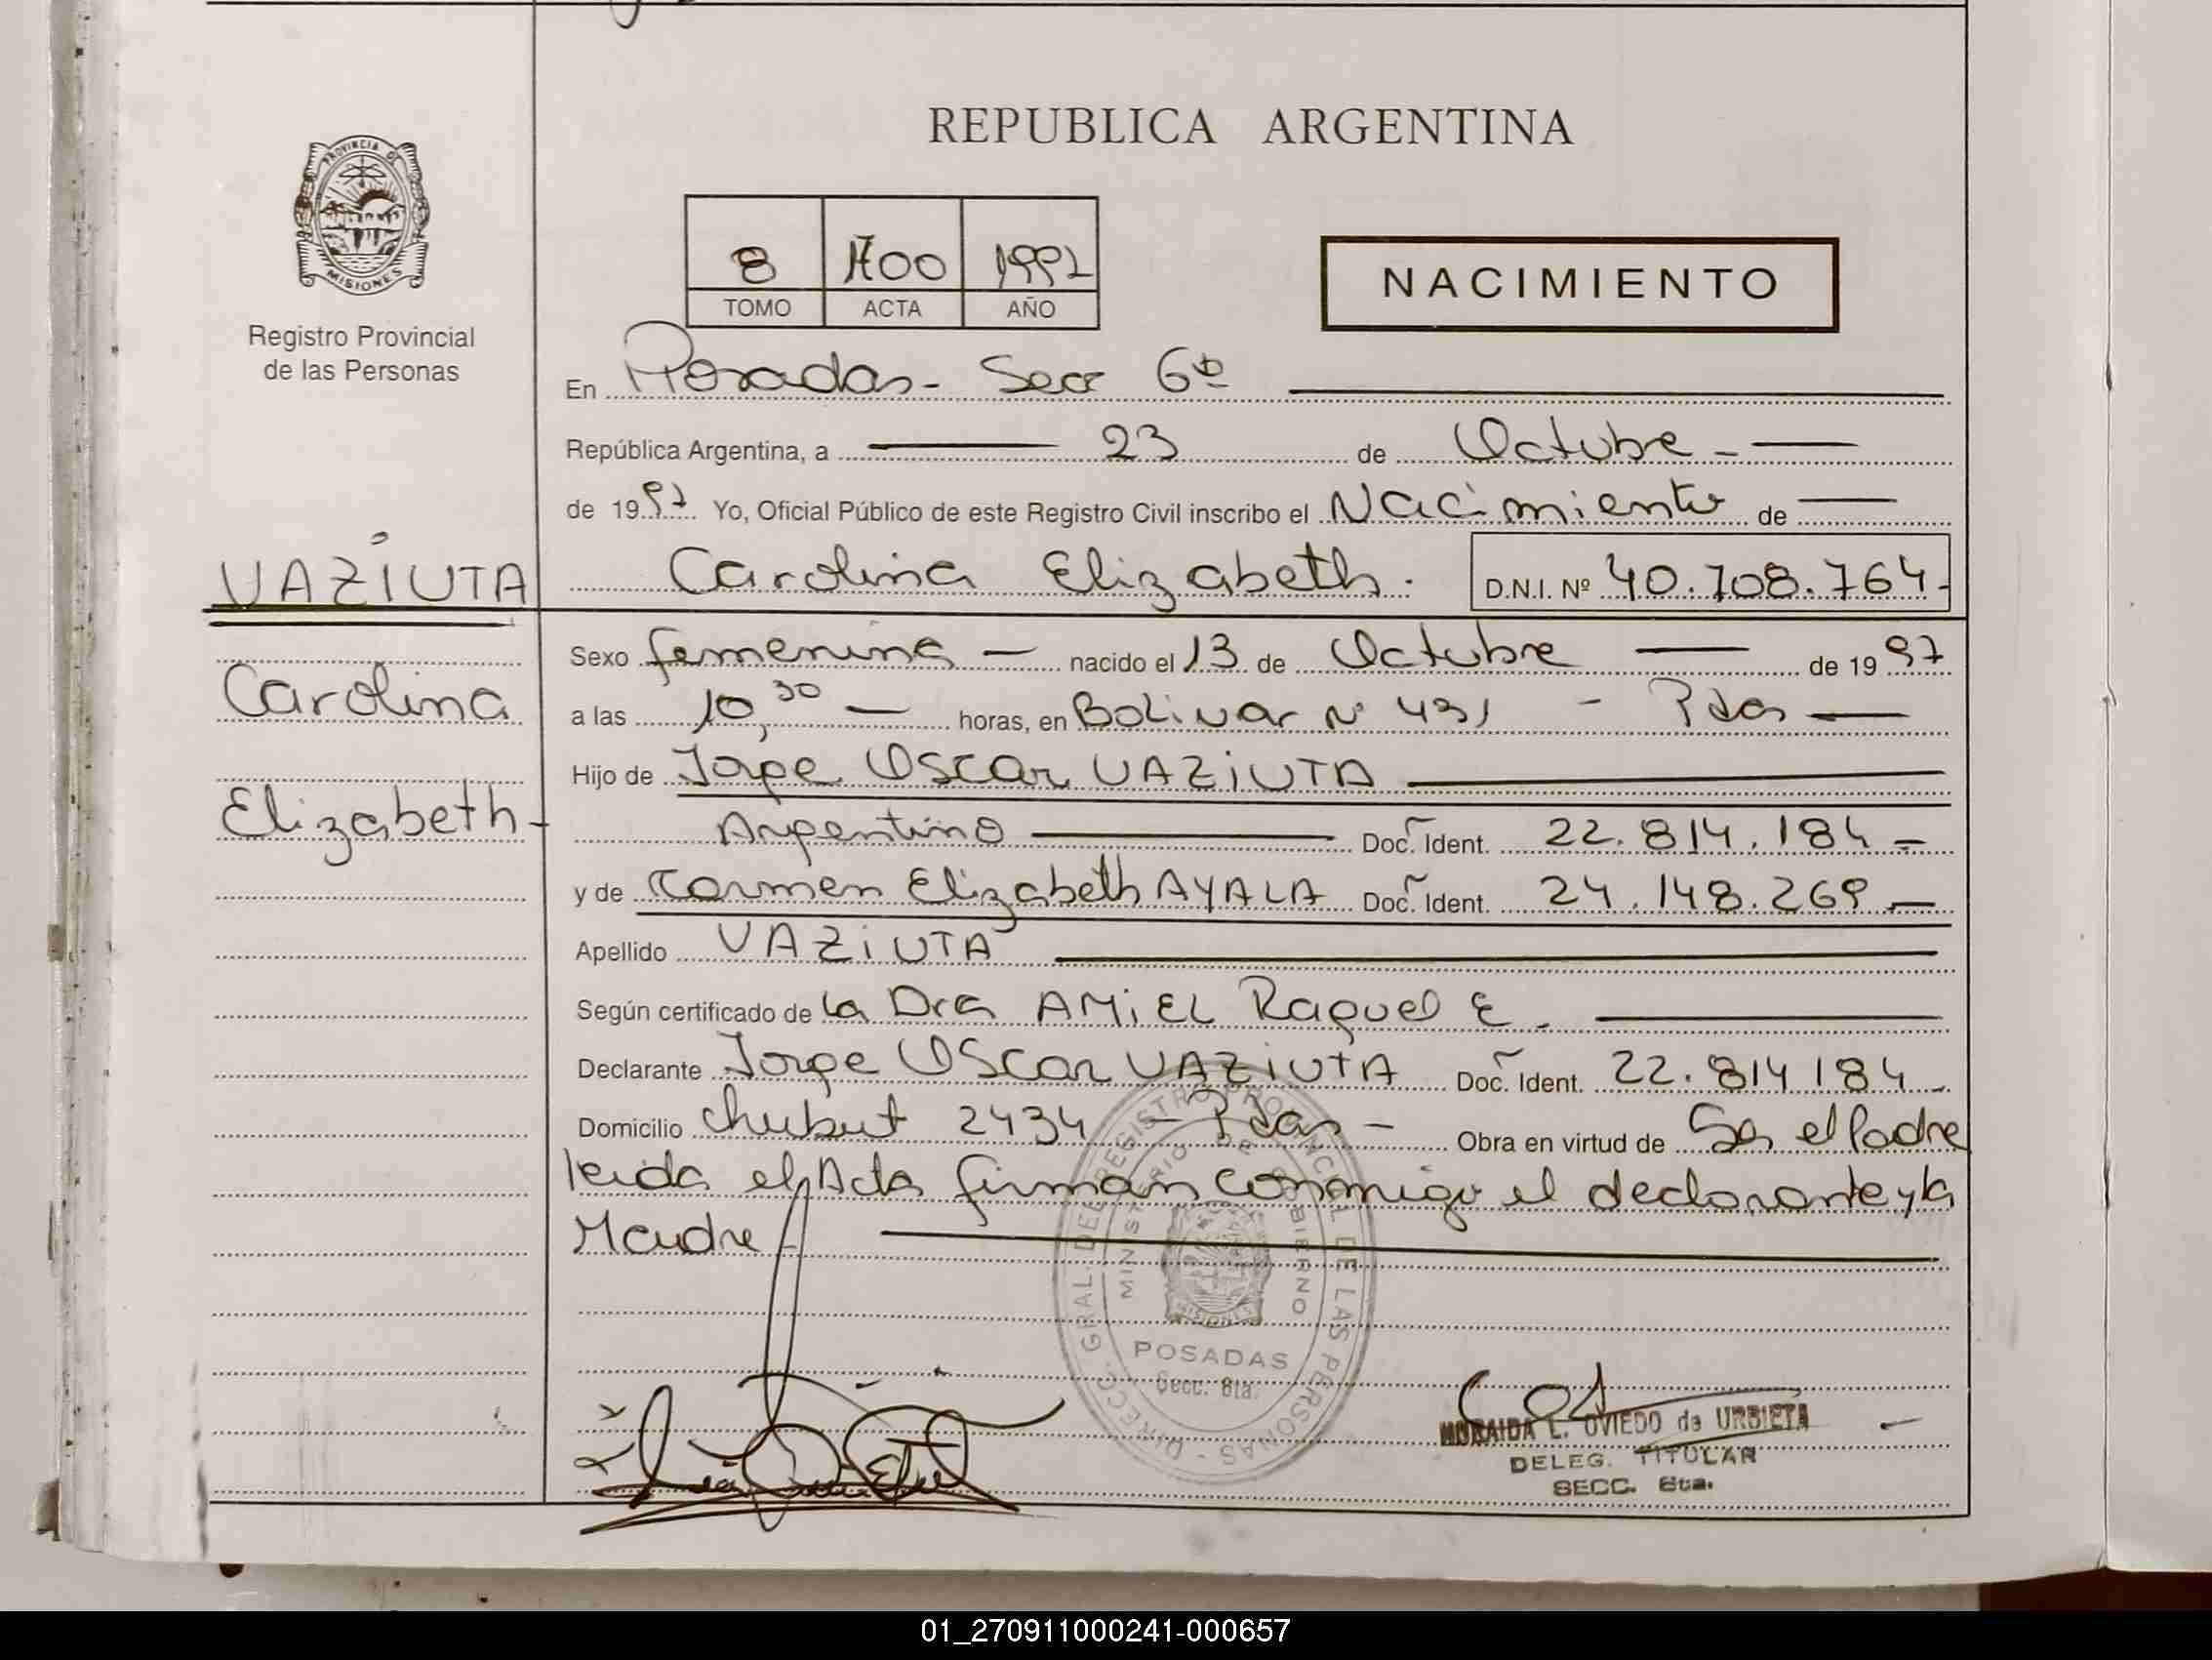 REPUBLICA ARGENTINA
PROVINCIA DE
MISIONES
Registro Provincial
de las Personas
8 1992
TOMO ACTA AÑO
NACIMIENTO
En Posadas - Secc 6ta
República Argentina, a 23 de Octubre -
de 1997 Yo, Oficial Público de este Registro Civil inscribo el Nacimiento de
VAZIUTA
Carolina Elizabeth. D.N.I. Nº 40.708.764-
Carolina
Elizabeth-
Sexo femenina - nacido el 13 de Octubre de 1997
a las 10,30 - horas, en Bolivar Nº 431 - Pdas
Hijo de Jorge Oscar VAZIUTA
Argentino Doc. Ident. 22.814.184 -
y de Carmen Elizabeth AYALA Doc. Ident. 24.148.269 -
Apellido VAZIUTA
Según certificado de la Dra AMIEL Raquel E.
Declarante Jorge Oscar VAZIUTA Doc. Ident. 22.814184
Domicilio Chubut 2434 - Pdas - Obra en virtud de Ser el Padre
leida el Acta firman conmigo el declarante y la
Madre -
DIRECC. GRAL. DEL REGISTRO PROVINCIAL DE LAS PERSONAS
MINISTERIO DE GOBIERNO
MISIONES
POSADAS
Secc. 6ta.
MORAIDA L. OVIEDO de URBIETA
DELEG. TITULAR
SECC. 6ta.
01_270911000241-000657